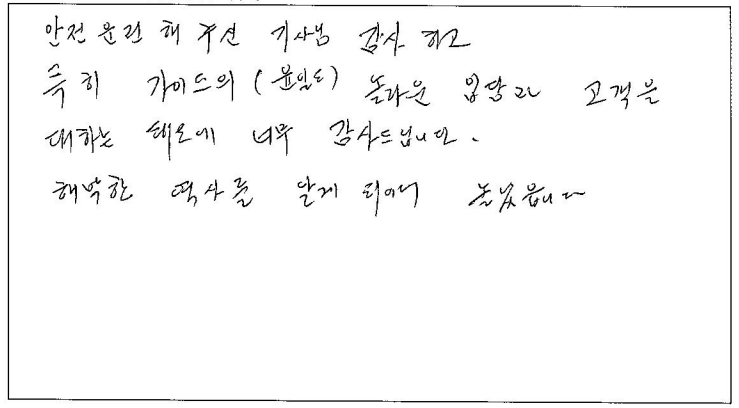 안전 운전 해 주신 기사님 감사 하고
특히 가이드의 (윤일도) 놀라운 입담과 고객을
대하는 태도에 너무 감사드립니다.
해박한 역사를 알게 되어서 놀랐읍니다